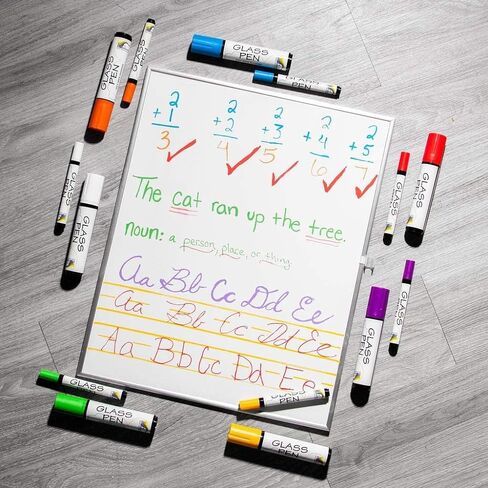 GLASS
PEN
GLASS PEN
GLASS
PEN
GLASS PEN
2 2 2 2 2
+1 +2 +3 +4 +5
3 4 5 6 7
The cat ran up the tree.
noun: a person, place, or thing.
Aa Bb Cc Dd Ee
Aa Bb Cc Dd Ee
Aa Bb Cc Dd Ee
GLASS PEN
GLASS
PEN
GLASS PEN
GLASS
PEN
GLASS PEN
GLASS
PEN
GLASS PEN
GLASS
PEN
GLASS PEN
GLASS
PEN